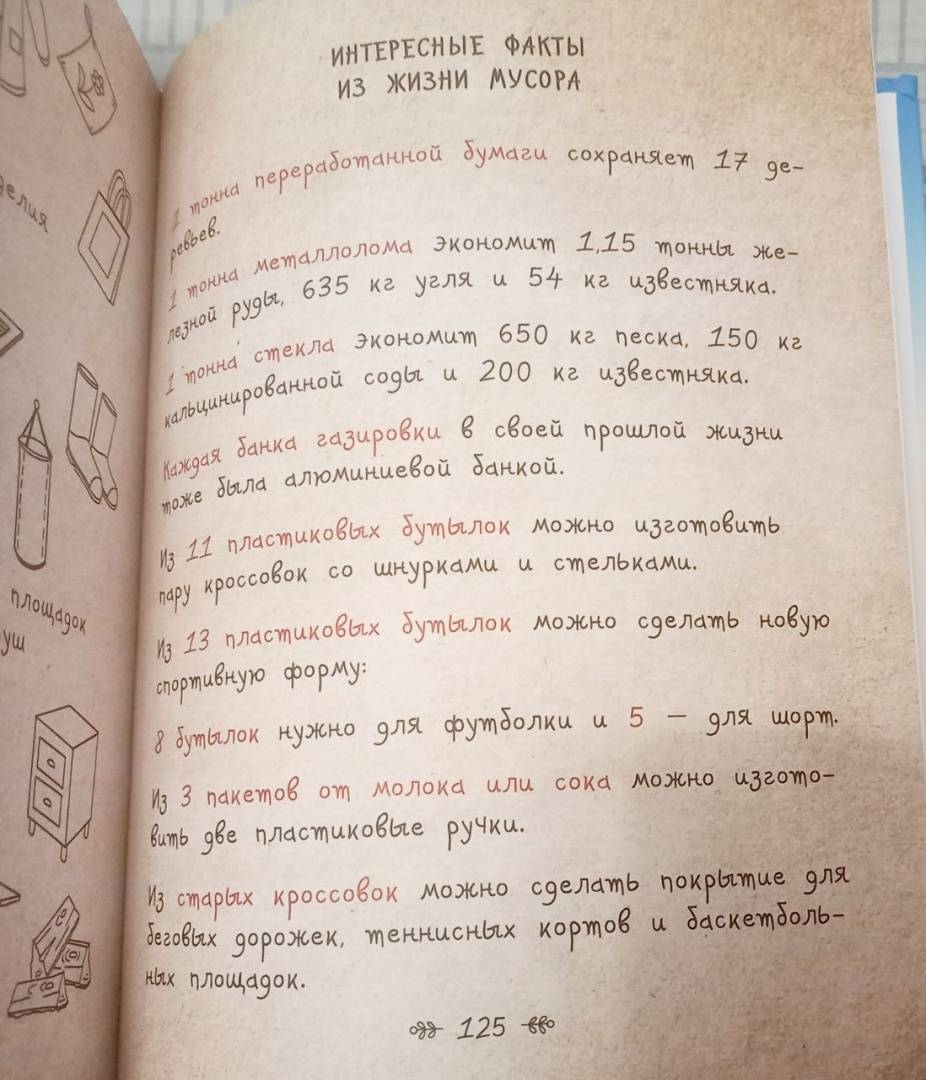 делия
площадок
уш
ИНТЕРЕСНЫЕ ФАКТЫ
ИЗ ЖИЗНИ МУСОРА
1 тонна переработанной бумаги сохраняет 17 де-
ревьев.
1 тонна металлолома экономит 1,15 тонны же-
лезной руды, 635 кг угля и 54 кг известняка.
1 тонна стекла экономит 650 кг песка, 150 кг
кальцинированной соды и 200 кг известняка.
Каждая банка газировки в своей прошлой жизни
тоже была алюминиевой банкой.
Из 11 пластиковых бутылок можно изготовить
пару кроссовок со шнурками и стельками.
Из 13 пластиковых бутылок можно сделать новую
спортивную форму:
8 бутылок нужно для футболки и 5 — для шорт.
Из 3 пакетов от молока или сока можно изгото-
вить две пластиковые ручки.
Из старых кроссовок можно сделать покрытие для
беговых дорожек, теннисных кортов и баскетболь-
ных площадок.
125